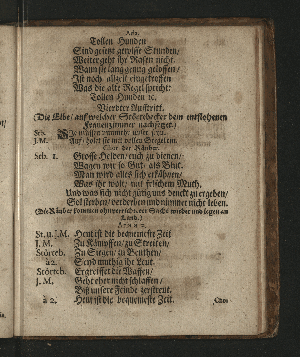 Tollen Hunden
Sind gesetzt gewisse Stunden/
Weiter geht ihr Rasen nicht.
Wann sie lang genug geloffen/
Ist noch allzeit eingetroffen
Was die alte Regel spricht:
Tollen Hunden ꝛc.
Vierdter Aufftritt.
(Die Elbe/ auf welcher Störtebecker dem entflohenen
Frauenzimmer nachsetzet.)
J.M. Auf/ holet sie mit vollen Segeln ein.
Chor der Räuber.
Seb. 1. Grosse Helden/ euch zu dienen/
Wagen wir so Gut als Blut.
Man wird alles sich erkühnen/
Was ihr wolt/ mit frischem Muth.
Und was sich nicht gütig uns denckt zu ergeben/
Sol sterben/ verderben und nimmer nicht leben.
(Die Räuber kommen ohnverrichteter Sache wieder und legen an
Land.)
Aria
St. u. J.M. Heut ist die bequemeste Zeit
J. M. Zu Kämpffen/ zu Streiten/
Störteb. Zu Siegen/ zu Beuthen/
à 2. Seyd muthig ihr Leut.
Störteb. Ergreiffet die Waffen/
J. M. Geht eher nicht schlaffen/
Biß unsere Feinde zerstreut.
à 2. Heut ist die bequemeste Zeit.